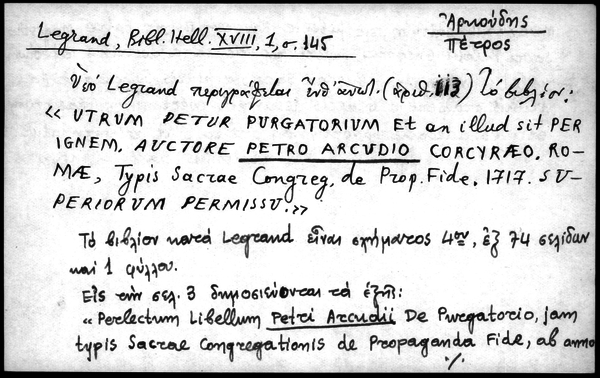 Ἀρκούδης
Πέτρος
Legrand, Bibl. Hell. XVIII, 1, σ. 145
Ὑπὸ Legrand περιγράφεται ἔνθ' ἀνωτ. (ἀριθ. 113) τὸ βιβλίον:
« UTRUM DETUR PURGATORIUM Et an illud sit PER
IGNEM, AUCTORE PETRO ARCUDIO CORCYRÆO, RO-
MÆ, Typis Sacrae Congreg. de Prop. Fide, 1717. SU-
PERIORUM PERMISSU.»
Τὸ βιβλίον κατὰ Legrand εἶναι σχήματος 4ου, ἐξ 74 σελίδων
καὶ 1 φύλλου.
Εἰς τὴν σελ. 3 δημοσιεύονται τὰ ἑξῆς:
« Perlectum Libellum Petri Arcudii De Purgatorio, jam
typis Sacrae Congregationis de Propaganda Fide, ab anno
./.